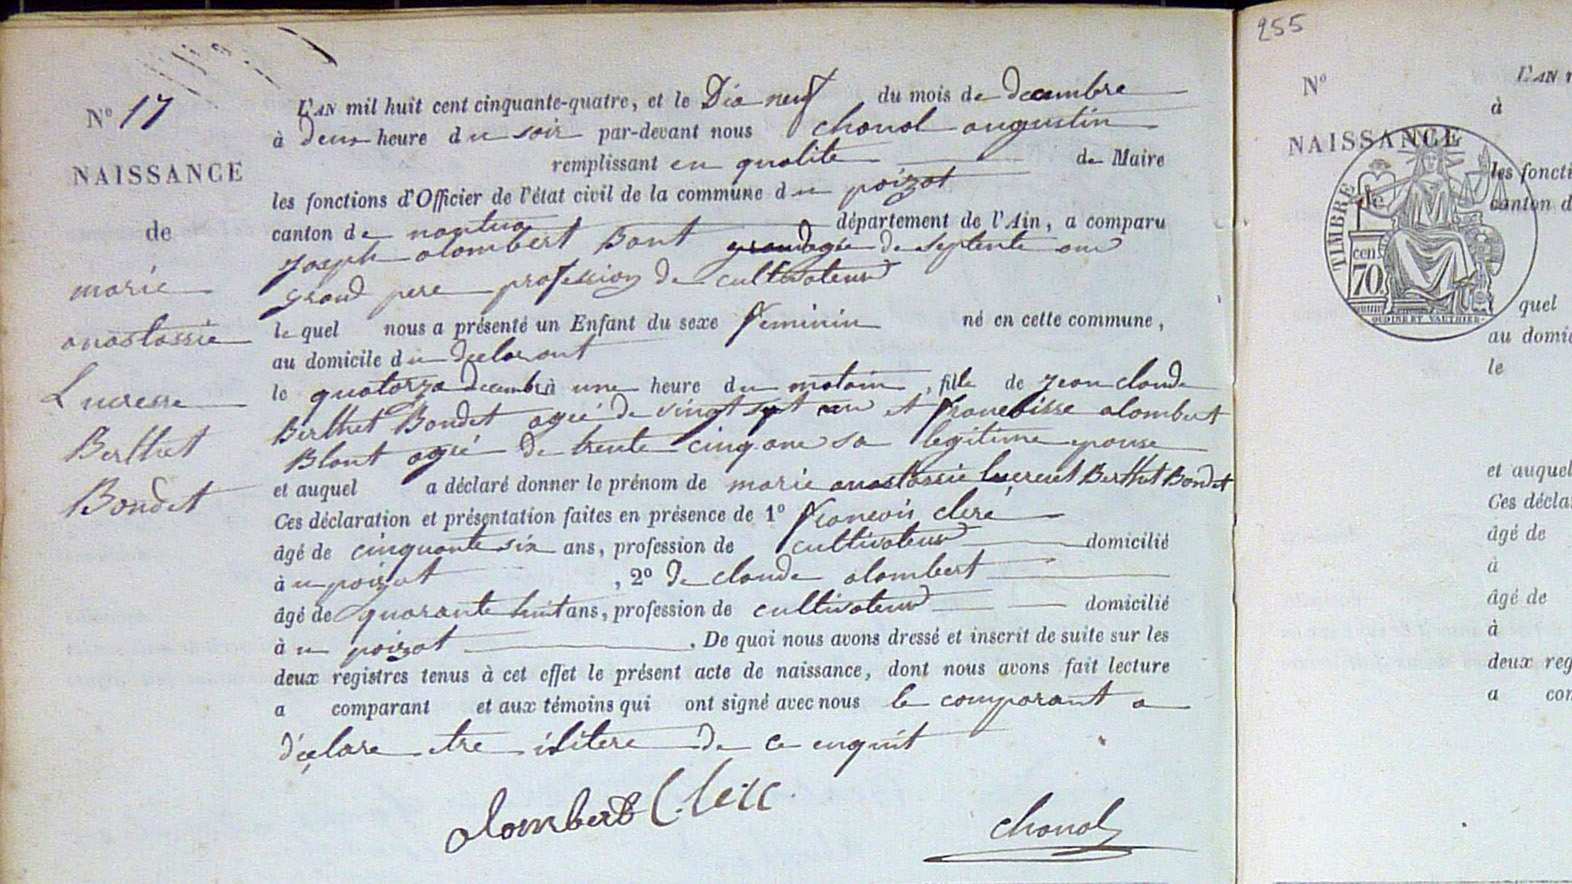 N° 17
NAISSANCE
de
marie
anastassie
Lucresse
Berthet
Bondet
L'AN mil huit cent cinquante-quatre, et le Dix neuf du mois de decembre
à deux heure du soir par-devant nous chanal augustin
remplissant en qualite de Maire
les fonctions d'Officier de l'état civil de la commune du poizat
canton de nantua département de l'Ain, a comparu
Joseph alombert Bont agée de septente ans
grand pere profession de cultivateur
le quel nous a présenté un Enfant du sexe feminin né en cette commune,
au domicile du declarant
le quatorze decembre à une heure du matin, fille de Jean claude
Berthet Bondet agé de vingt sept ans et francoisse alombert
Blont agé de trente cinq ans sa legitime epouse
et auquel a déclaré donner le prénom de marie anastassie lucresse Berthet Bondet
Ces déclaration et présentation faites en présence de 1° francois cleré
âgé de cinquante six ans, profession de cultivateur domicilié
à u poizat, 2° de claude alombert
âgé de quarante huit ans, profession de cultivateur domicilié
à u poizat. De quoi nous avons dressé et inscrit de suite sur les
deux registres tenus à cet effet le présent acte de naissance, dont nous avons fait lecture
a comparant et aux témoins qui ont signé avec nous le comparant a
déclare etre ilitere de ce enquit
alombert Clerc
chanal
255
N°
NAISSANCE
de
L'AN m
à
les foncti
canton d
quel
au domic
le
et auquel
Ces déclar
âgé de
à
âgé de
à
deux reg
a con
TIMBRE
70 cen
OUDINE ET VAUTHIER